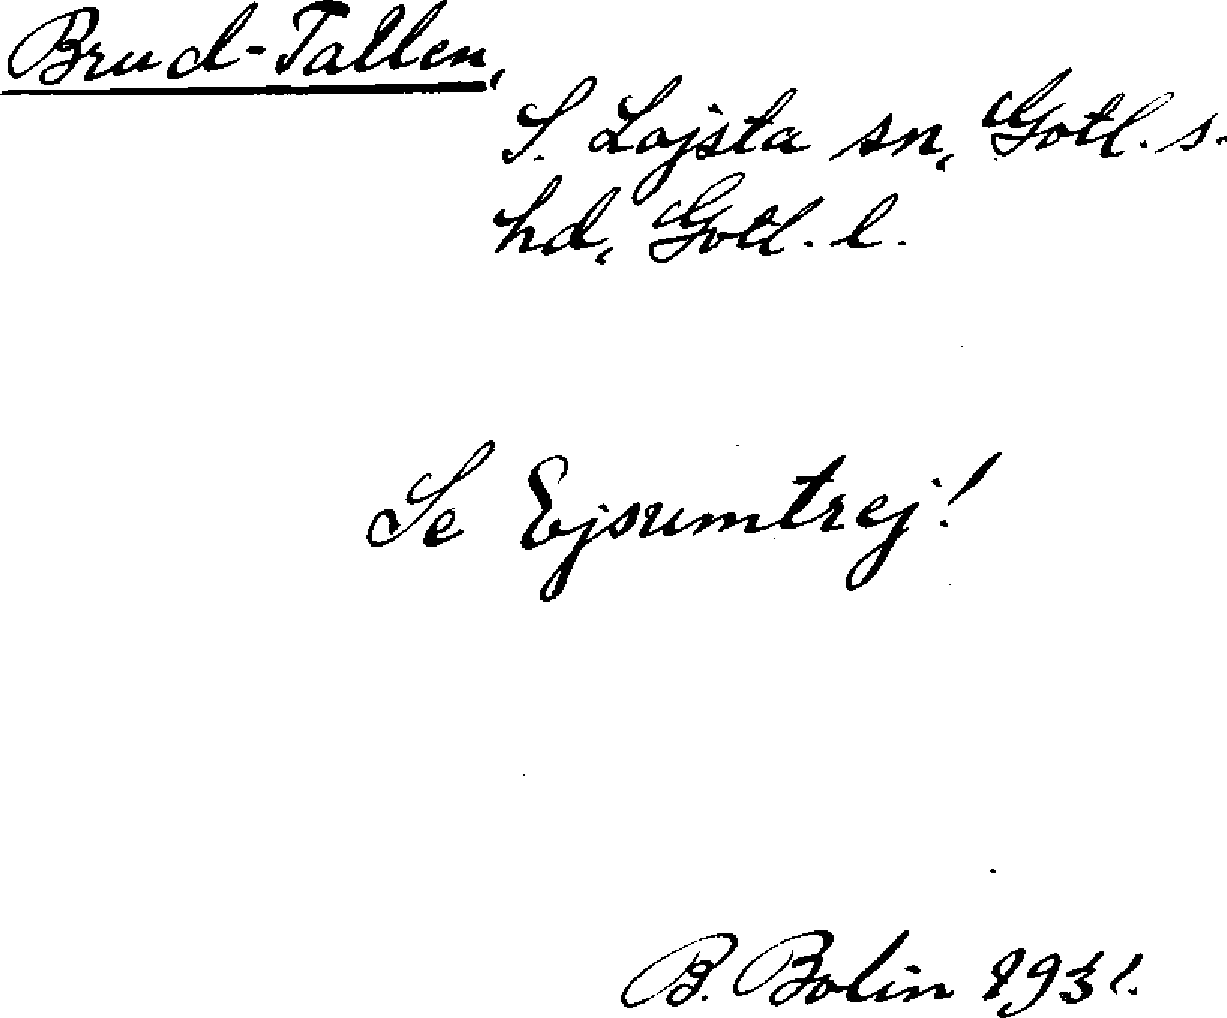 Brud-Tallen,
S. Lojsta sn, Gotl. s.
hd, Gotl. l.
Se Ejsumtrej!
B. Bolin 1931.